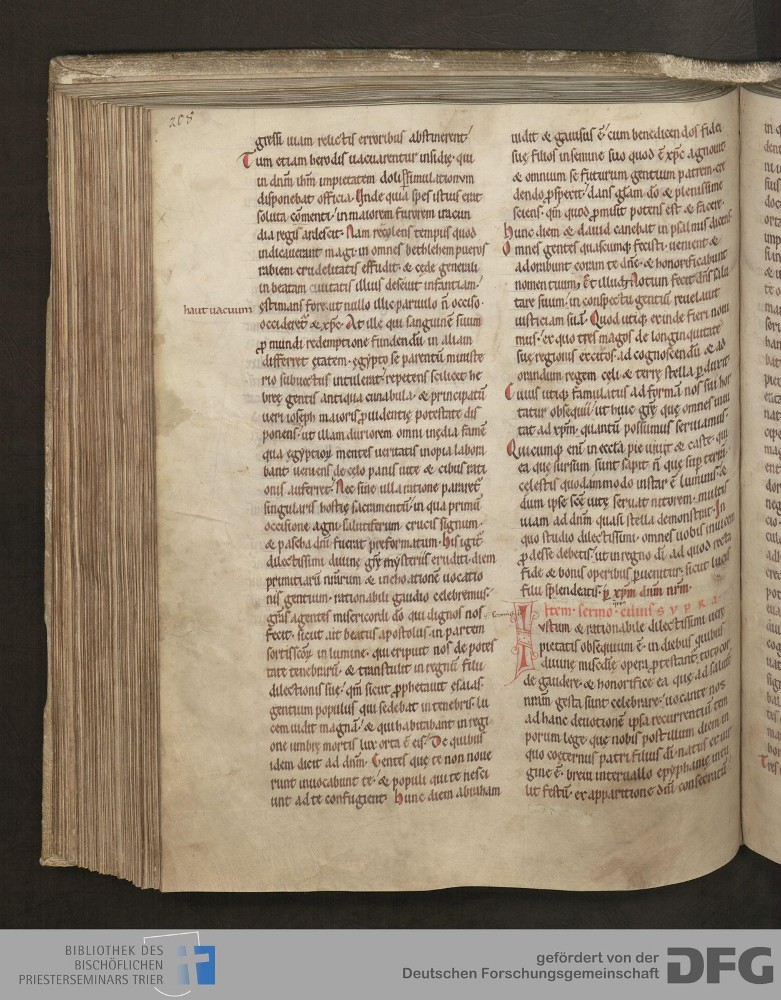 208
gressi uiam relictis erroribus abstinerent.
Tum etiam herodis uacuarentur insidię. qui
in dnm ihm impietatem dolis simulationum
disponebat officia. Unde quia spes istius erat
soluta comenti. in maiorem furorem iracun
dia regis ardescit. Nam recolens tempus quod
indicauerant magi. in omnes bethleem pueros
rabiem crudelitatis effudit. & cęde generali
in beatam ciuitatis illius deseuit infantiam.
haut uacuum
ęstimans fore. ut nullo illic paruulo n̄ occiso.
occideret᷑ & xp̄c. At ille qui sanguinē suum
ꝓ mundi redemptione fundendū in aliam
differret ętatem. egypto se parentū ministe
rio subuectus intulerat. repetens scilicet he
breę gentis antiqua cunabula. & principatū
ueri ioseph maioris ꝓuidentię potestate dis
ponens. ut illam duriorem omni inędia famē
qua egyptioꝝ mentes ueritatis inopia labora
bant. ueniens de cęlo panis uitę & cibus rati
onis auferret. Nec sine illa ratione pararet᷑
singularis hostię sacramentū. in qua primū
occisione agni. salutiferum crucis signum.
& pascha dn̄i fuerat preformatum. His igit᷑
dilectissimi diuinę grę mysteriis eruditi. diem
primitiarū nr̄arum & inchoationē uocatio
nis gentium. rationabili gaudio celebremus.
gr̄as agentes misericordi dō qui dignos nos
fecit. sicut ait beatus apostolus. in partem
sortis scoꝝ in lumine. qui eripuit nos de potes
tate tenebrarū. & transtulit in regnū filii
dilectionis suę. qm̄ sicut ꝓphetauit esaias.
gentium populus qui sedebat in tenebris. lu
cem uidit magnā. & qui habitabant in regi
one umbrę mortis lux orta ē eis. De quibus
idem dicit ad dnm. Gentes quę te non noue
runt inuocabunt te. & populi qui te nesci
unt ad te confugient. Hunc diem abraham
uidit & gauisus ē. cum benedicendos fidei
suę filios in semine suo quod ē xp̄c agnouit
& omnium se futurum gentium patrem cre
dendo ꝓspexit. dans glam dō & plenissime
sciens. qm̄ quod ꝓmisit potens est & facere.
Hunc diem & dauid canebat in psalmis dicens.
Omnes gentes quascumq; fecisti. uenient &
adorabunt coram te dn̄e. & honorificabunt
nomen tuum. Et illud. Notum fecit dn̄s salu
tare suum. in conspectu gentiū reuelauit
iusticiam suā. Quod utiq; exinde fieri noui
mus. ex quo tres magos de longinquitate
suę regionis excitos. ad cognoscendū & ad
orandum regem celi & terrę stella ꝑduxit.
Cuius utiq; famulatus ad formā nos sui hor
tatur obsequii. ut huic grę quę omnes inui
tat ad xp̄m. quantū possumus seruiamus.
Quicumq; enī in eccl̄a pie uiuit & caste. qui
ea quę sursum sunt sapit n̄ quę sup terrā.
celestis quodammodo instar ē luminis. &
dum ipse scę uitę seruat nitorem. multis
uiam ad dnm quasi stella demonstrat. In
quo studio dilectissimi. omnes uobis inuicem
ꝓdesse debetis. ut in regno dī. ad quod recta
fide & bonis operibus ꝑuenitur. sicut lucis
filii splendeatis. ꝑ xp̄m dnm nr̄m.
Item. sermo. eiusdē supra.
Iustum & rationabile dilectissimi uerę
pietatis obsequium ē. in diebus quibus
diuinę miscdię opera ꝓtestant. toto cor
de gaudere. & honorifice ea quę ad salutē
nr̄am gesta sunt celebrare. uocante nos
ad hanc deuotionē ipsa recurrentiū tem
porum lege. quę nobis post illum diem in
quo coęternus patri filius dī. natus ex uir
gine ē. breui interuallo epyphanię intu
lit festū. ex apparitione dn̄i consecratū
BIBLIOTHEK DES
BISCHÖFLICHEN
PRIESTERSEMINARS TRIER
gefördert von der
Deutschen Forschungsgemeinschaft
DFG